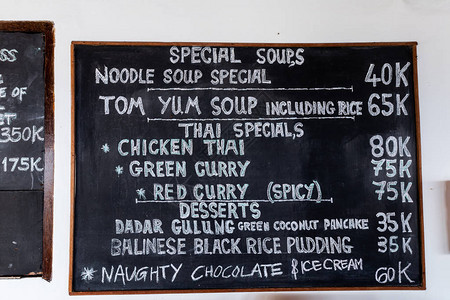 SS
E OF
ET
350K
175K
SPECIAL SOUPS
NOODLE SOUP SPECIAL 40K
TOM YUM SOUP INCLUDING RICE 65K
THAI SPECIALS
* CHICKEN THAI 80K
* GREEN CURRY 75K
* RED CURRY (SPICY) 75K
DESSERTS
DADAR GULUNG GREEN COCONUT PANCAKE 35K
BALINESE BLACK RICE PUDDING 35K
* NAUGHTY CHOCOLATE & ICECREAM 60K